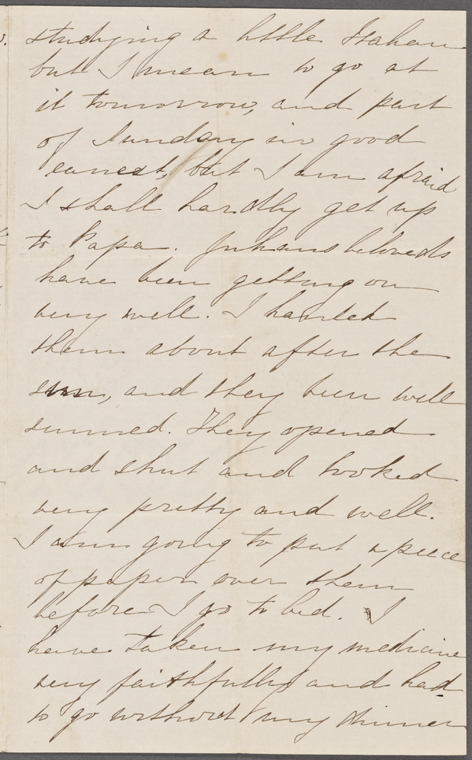 studying a little Italian
but I mean to go at
it tomorrow, and part
of Sunday in good
earnest, but I am afraid
I shall hardly get up
to Papa. Julians beloveds
have been getting on
very well. I hauled
them about after the
sun, and they been well
sunned. They opened
and shut and looked
very pretty and well.
I am going to put a piece
of paper over them
before I go to bed. I
have taken my medicine
very faithfully and had
to go without my dinner